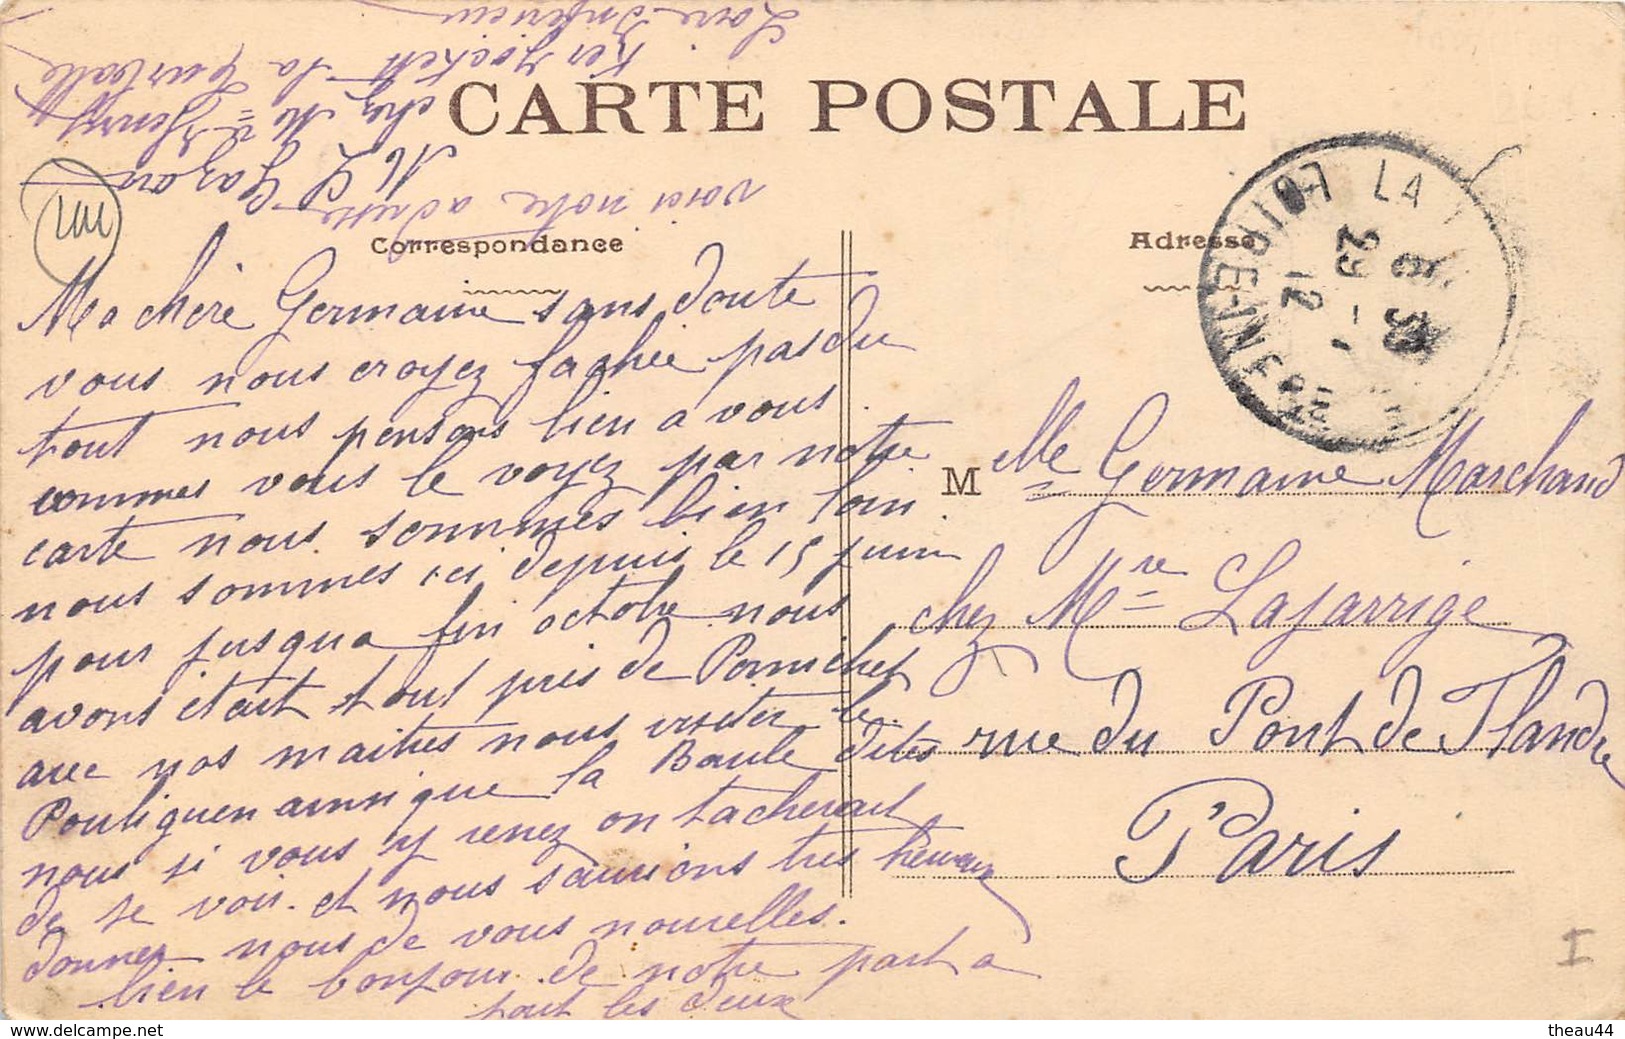 CARTE POSTALE
Correspondance
Adresse
Ma chère Germaine sans doute
vous nous croyez fachée pas du
tout nous pensons bien a vous.
commes vous le voyez par notre
carte nous sommes bien loin.
nous sommes ici depuis le 15 juin
pour jusqua fin octobre nous
avons était tout près de Pornichet
avec nos maitres nous visiter le
Pouliguen ainsi que la Baule dites
nous si vous y venez on tacherait
de se voir. et nous saurions très heureux
donnez nous de vous nouvelles.
bien le bonjour de notre part a
tout les deux
voici notre adresse
chez Mme Henry
la Turballe
Loire Inferieur
LA
LOIRE-INFERIEURE
29 - 7
12
M elle Germaine Marchand
chez Mre Lafarrige
rue du Pont de Flandre
Paris
I
theau44